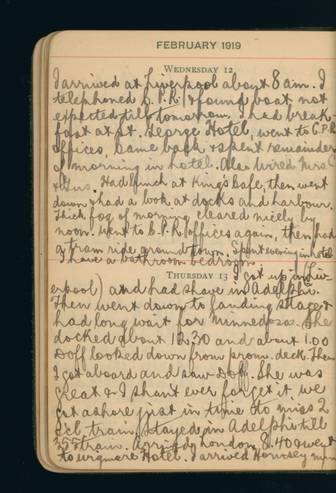 FEBRUARY 1919
WEDNESDAY 12
I arrived at Liverpool about 8 am. I
telephoned C.P.R. & found boat not
expected till tomorrow. I had break-
fast at St. George Hotel, went to C.P.R
offices, came back & spent remainder
of morning in hotel. Also wired Mrs
Had lunch at King's Cafe, then went
down & had a look at docks and harbour.
Thick fog of morning cleared nicely by
noon. Went to C.P.R. offices again, then had
a tram ride around town. Spent evening in hotel
I have a bathroom bedroom.
THURSDAY 13 I got up (in Liv-
erpool) and had shave in Adelphi.
Then went down to landing stage &
had long wait for Minnedosa. She
docked about 12.30 and about 1.00
Doff looked down from prom. deck. Then
I got aboard and saw Doff. She was
great & I shan't ever forget it. We
got ashore just in time to miss 2
o'cl. train, stayed in Adelphi till
train. Arrived London 8.40 & went
to Hotel. I arrived Hornsey